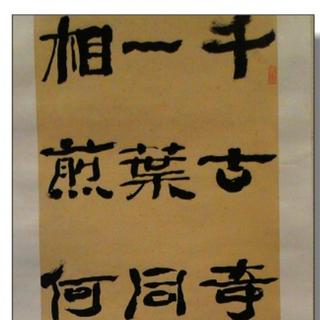 千古奇
一葉同
相煎何